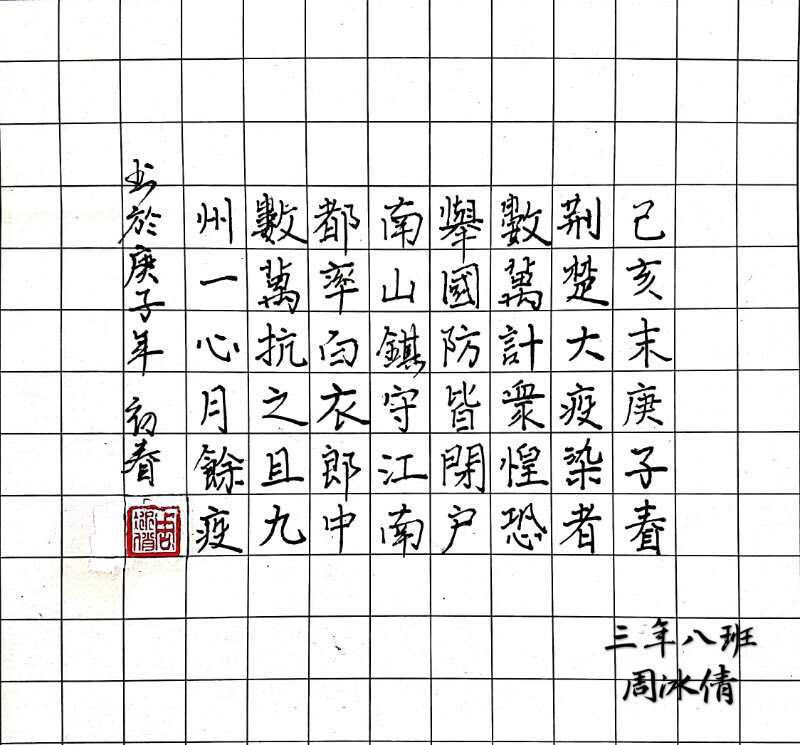 己亥末庚子春
荆楚大疫染者
數萬計眾惶恐
舉國防皆閉戶
南山鎮守江南
都率白衣郎中
數萬抗之且九
州一心月餘疫
书於庚子年 初春
周冰倩
三年八班
周冰倩